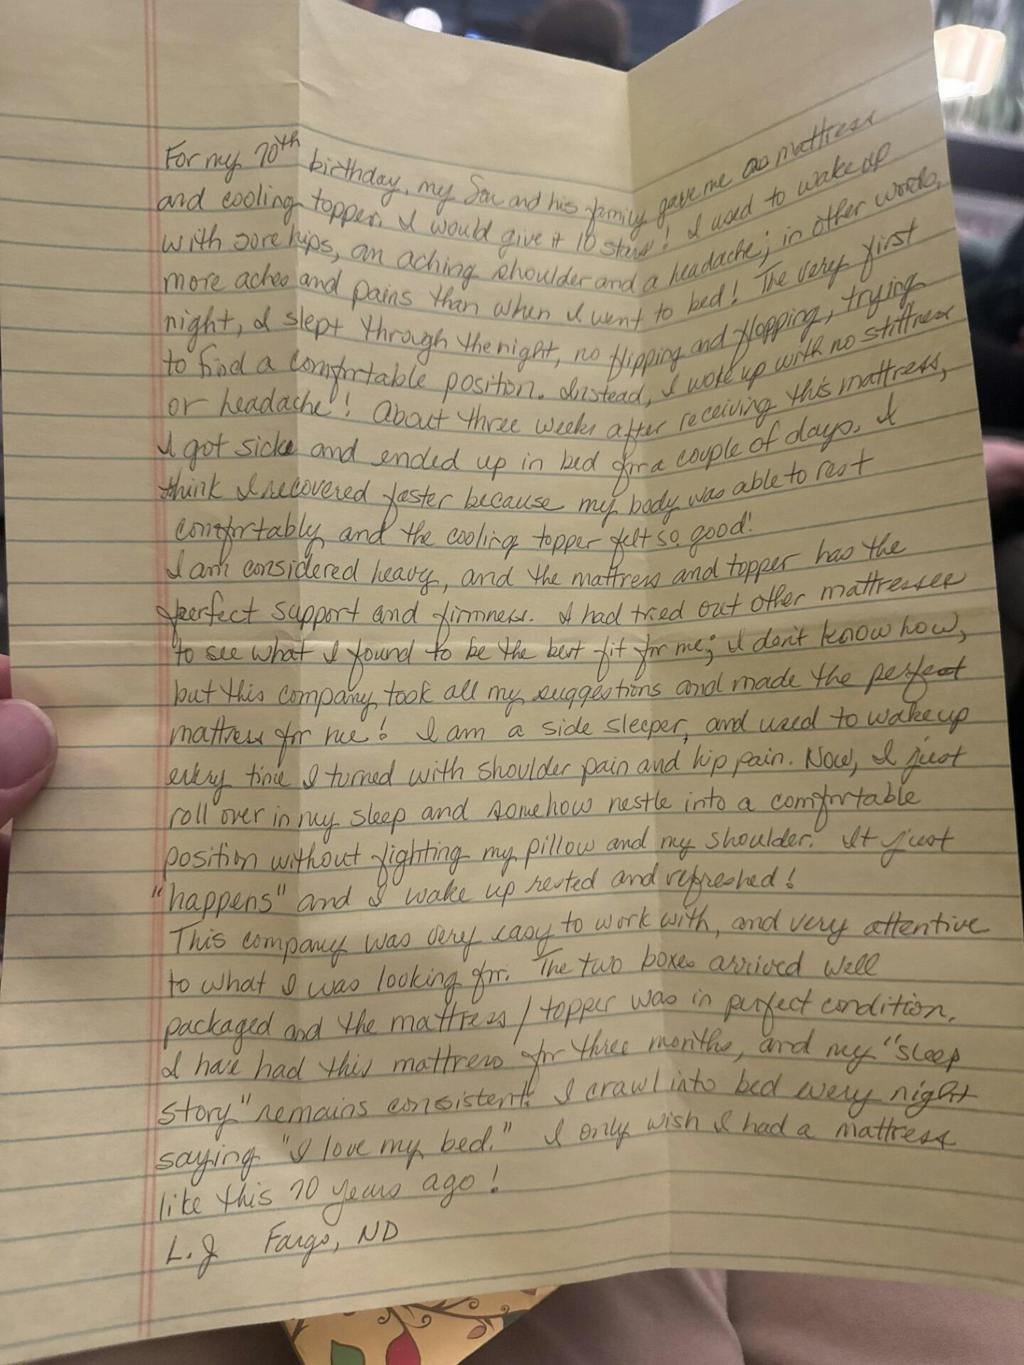 For my 70th birthday, my Son and his family gave me a mattress
and cooling topper. I would give it 10 stars! I used to wake up
with sore hips, an aching shoulder and a headache; in other words,
more aches and pains than when I went to bed! The very first
night, I slept through the night, no flipping and flopping, trying
to find a comfortable position. Instead, I woke up with no stiffness
or headache! About three weeks after receiving this mattress,
I got sick and ended up in bed for a couple of days. I
think I recovered faster because my body was able to rest
comfortably and the cooling topper felt so good!
I am considered heavy, and the mattress and topper has the
perfect support and firmness. I had tried out other mattresses
to see what I found to be the best fit for me; I don't know how,
but this company took all my suggestions and made the perfect
mattress for me! I am a side sleeper, and used to wake up
every time I turned with shoulder pain and hip pain. Now, I just
roll over in my sleep and somehow nestle into a comfortable
position without fighting my pillow and my shoulder. It just
"happens" and I wake up rested and refreshed!
This company was very easy to work with, and very attentive
to what I was looking for. The two boxes arrived well
packaged and the mattress/topper was in perfect condition.
I have had this mattress for three months, and my "sleep
story" remains consistent. I crawl into bed every night
saying "I love my bed." I only wish I had a mattress
like this 70 years ago!
L.J Fargo, ND